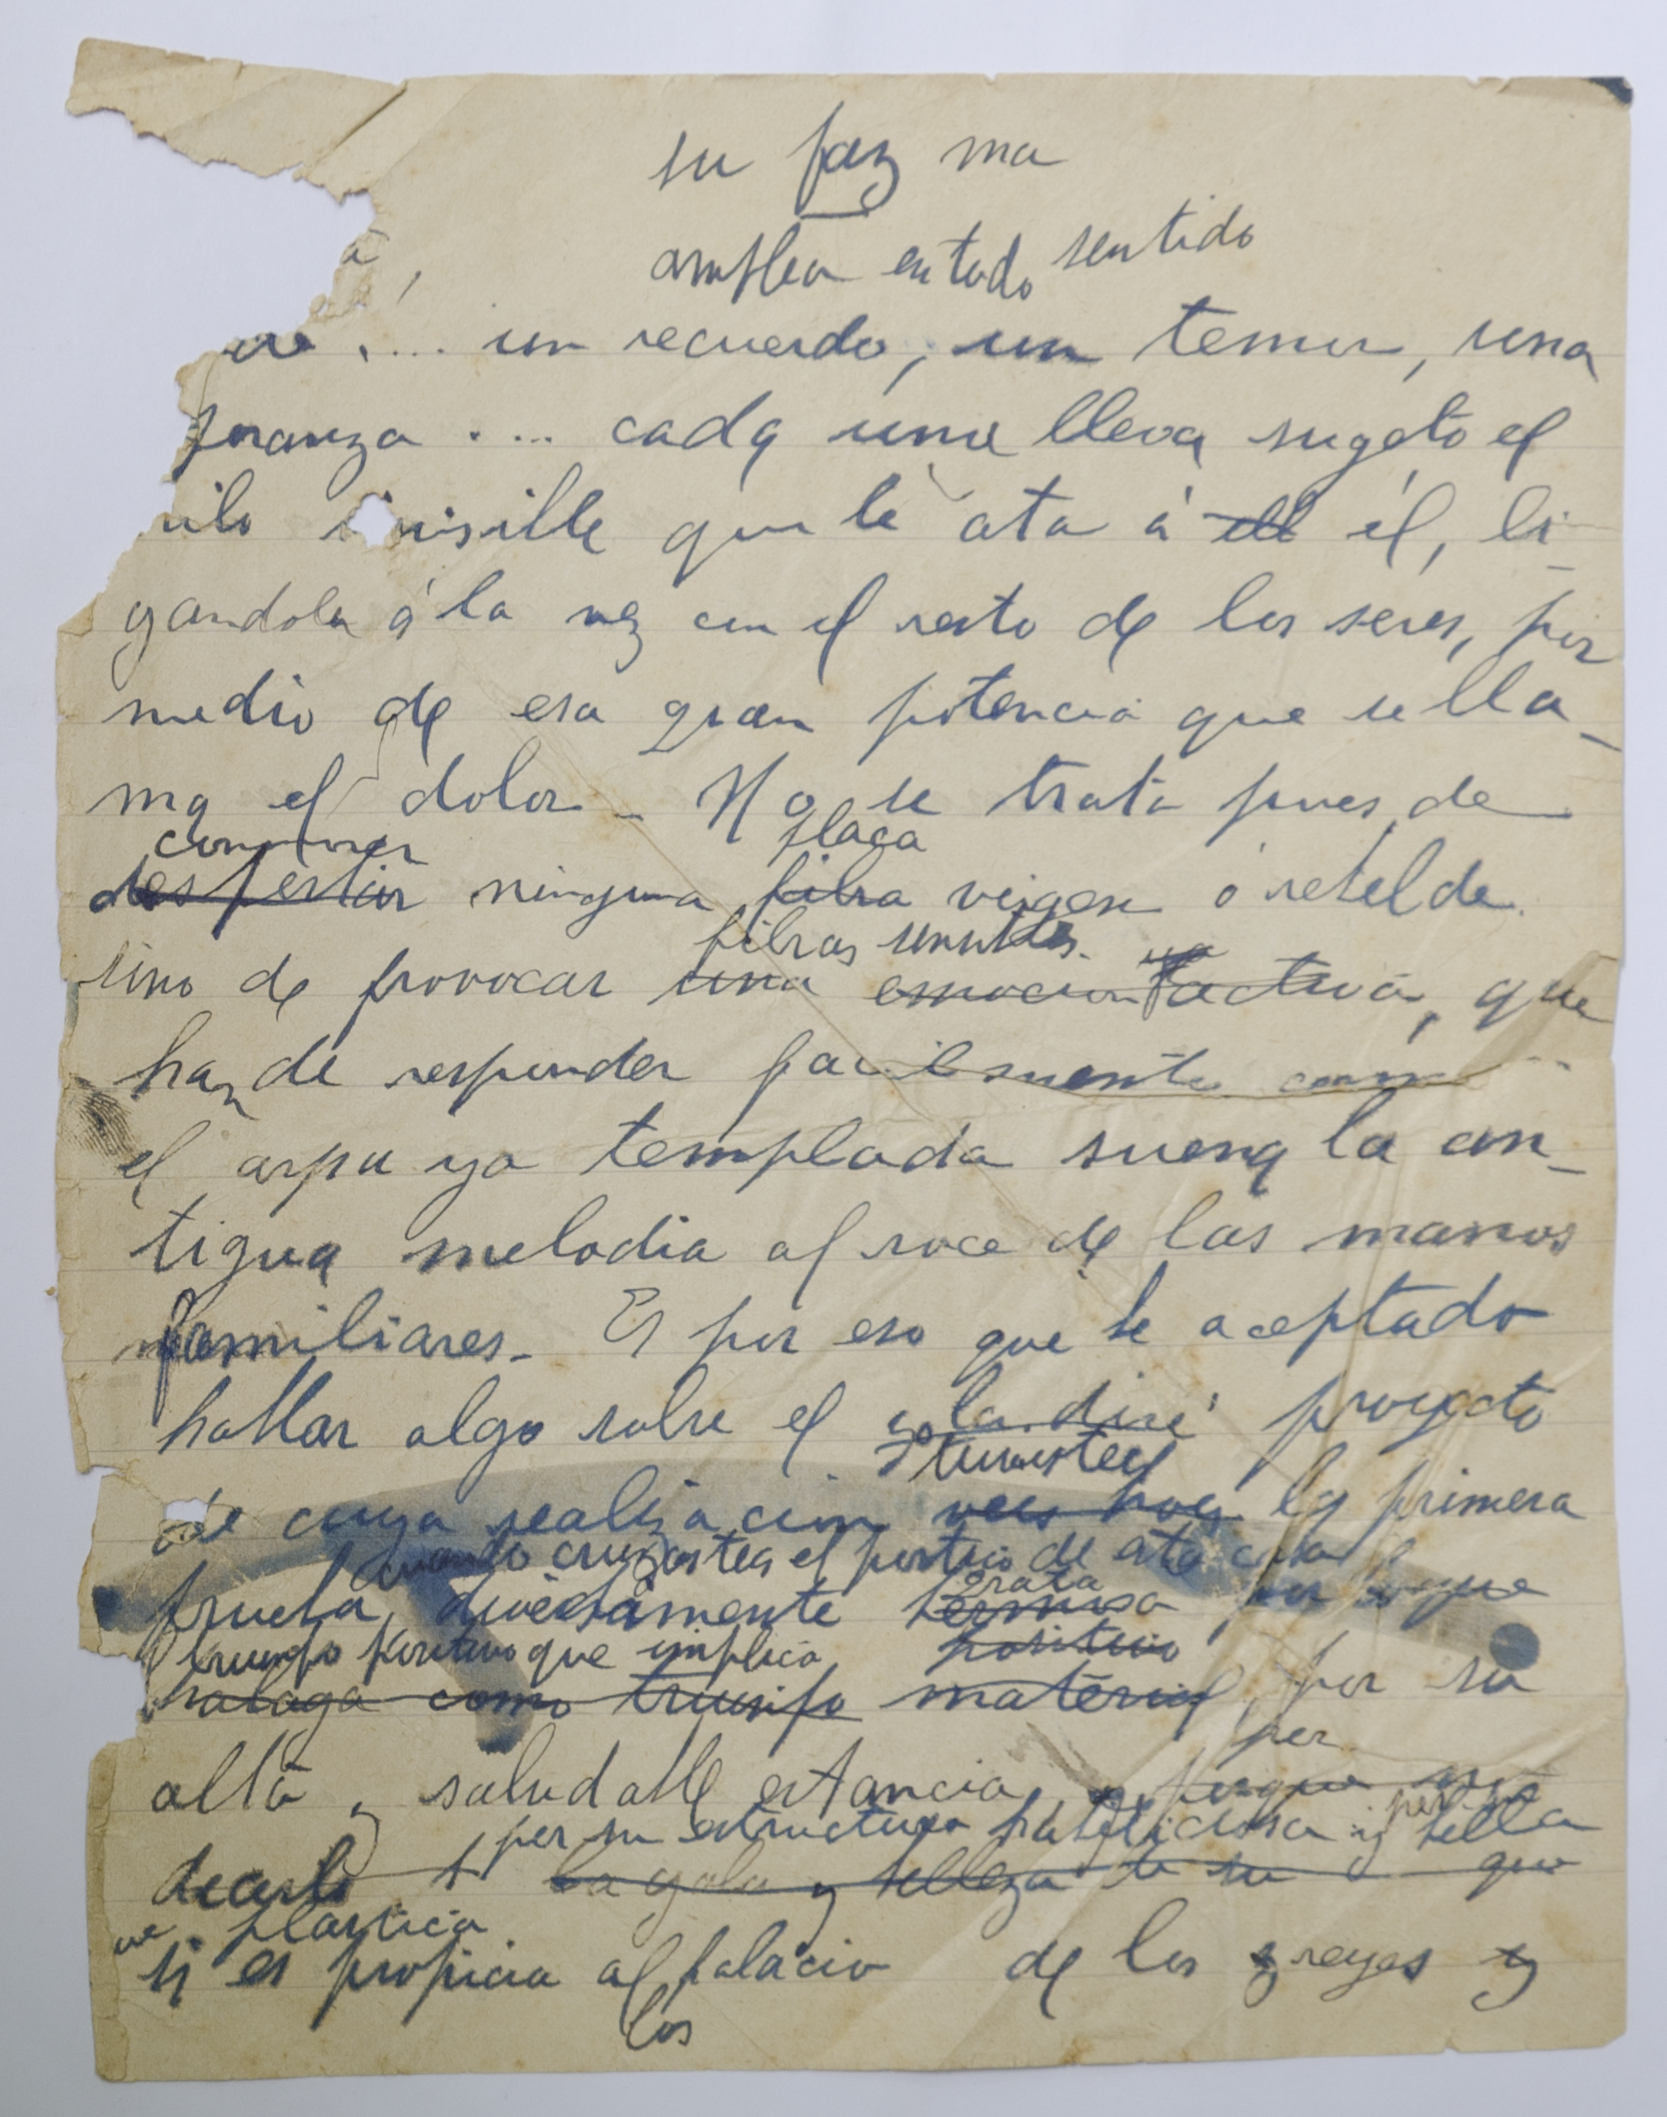 su faz ma
amplia en todo sentido
.... un recuerdo, un temor, una
peranza .... cada una lleva sugeto el
hilo invisible que le ata á él, li-
gandola á la vez con el resto de los seres, por
medio de esa gran potencia que se lla-
ma el dolor - No se trata pues de
conmover placa
despertar ninguna fibra virgen ó rebelde
fibras sensibles.
sino de provocar una emocion activa, que
han de responder facilmente como
el arpa ya templada suena la an-
tigua melodia al roce de las manos
familiares - Es por eso que he aceptado
hablar algo sobre el proyecto
tuvisteis
de cuya realizacion veis hoy la primera
cuando cruzasteis el portico de esta casa
prueba, directamente grata por lo que
triunfo positivo que implica positivo
halaga como triunfo material, por su
per
alta y saludable estancia
por su estructura y bella
decirlo la gala y belleza de su que
plastica
si es propicia al palacio de los reyes y
los